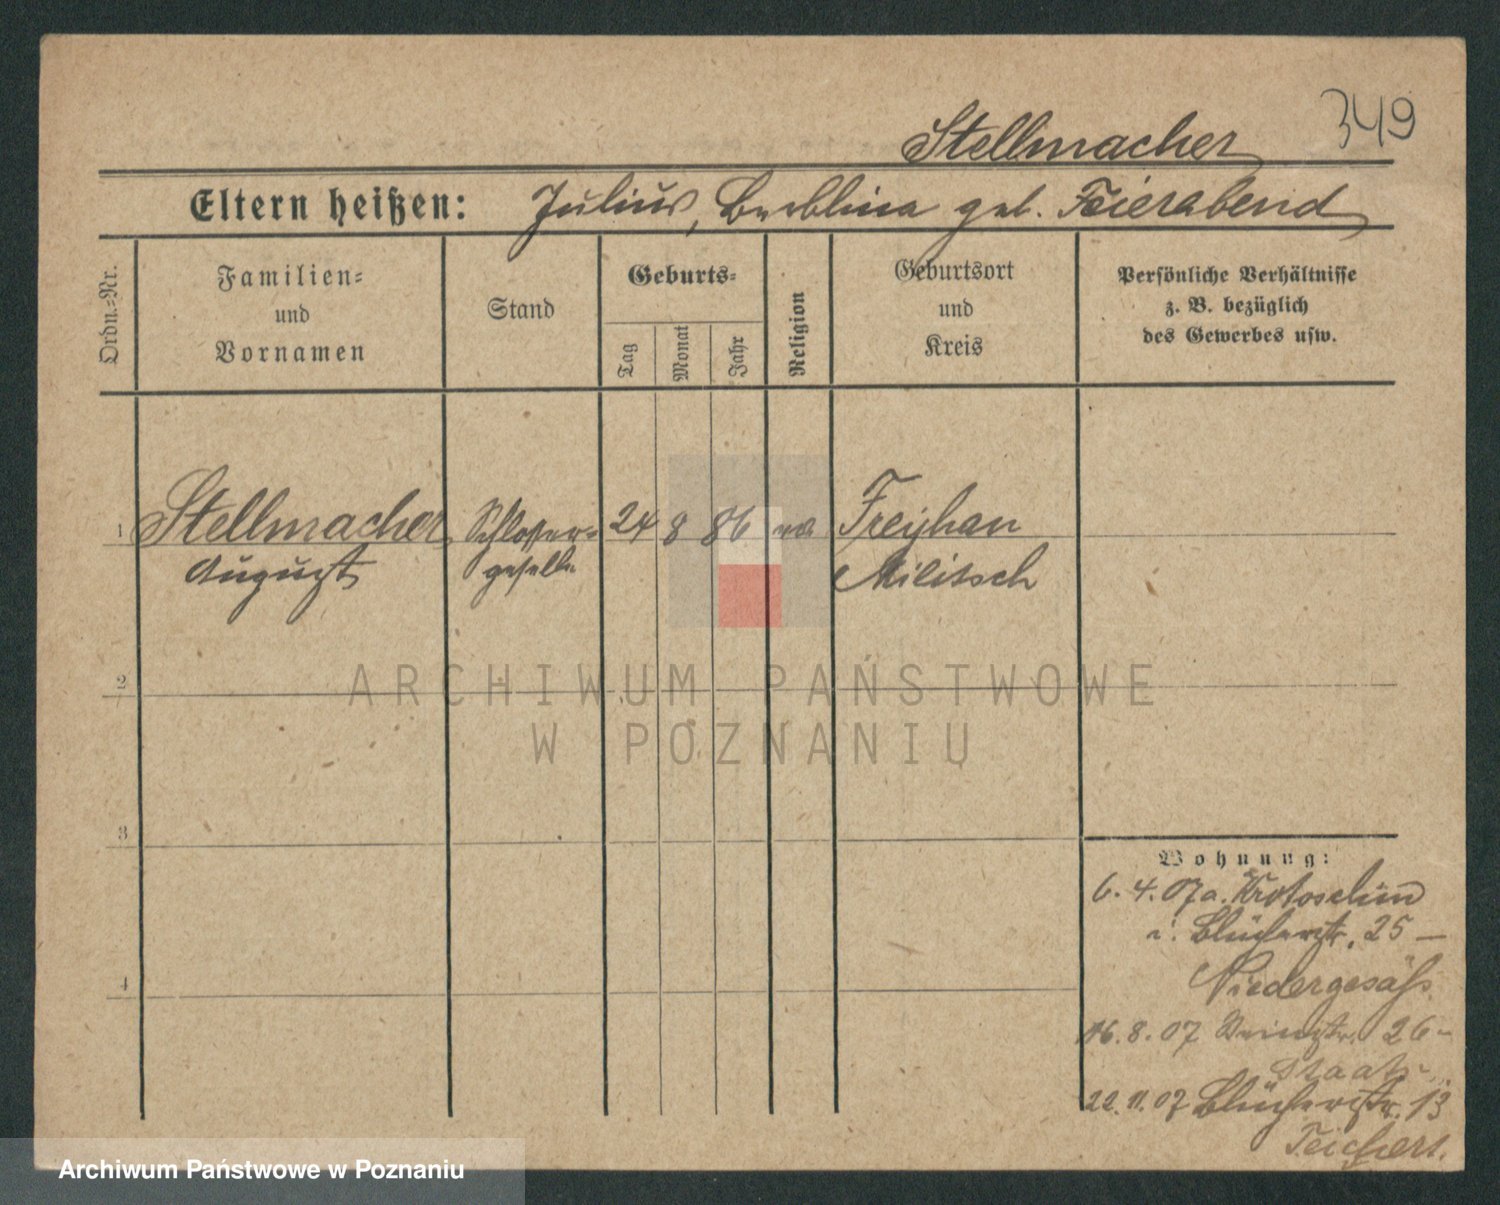 349
Stellmacher
Eltern heißen: Julius, geb. Feierabend
Ordn.=Nr.
Familien=
und
Vornamen
Stand
Geburts=
Tag
Monat
Jahr
Religion
Geburtsort
und
Kreis
Persönliche Verhältnisse
z. B. bezüglich
des Gewerbes usw.
1 Stellmacher Schlosser= 24 8 86 Freyhan
August geselle Militsch
2
3
4
Wohnung:
6. 4. 07 a. Krotoschin
i. Blücherstr. 25 —
Niedergesäß
16. 8. 07 26 —
Staat
22. 11. 07 Blücherstr. 13
Teichert.
ARCHIWUM PAŃSTWOWE
W POZNANIU
Archiwum Państwowe w Poznaniu